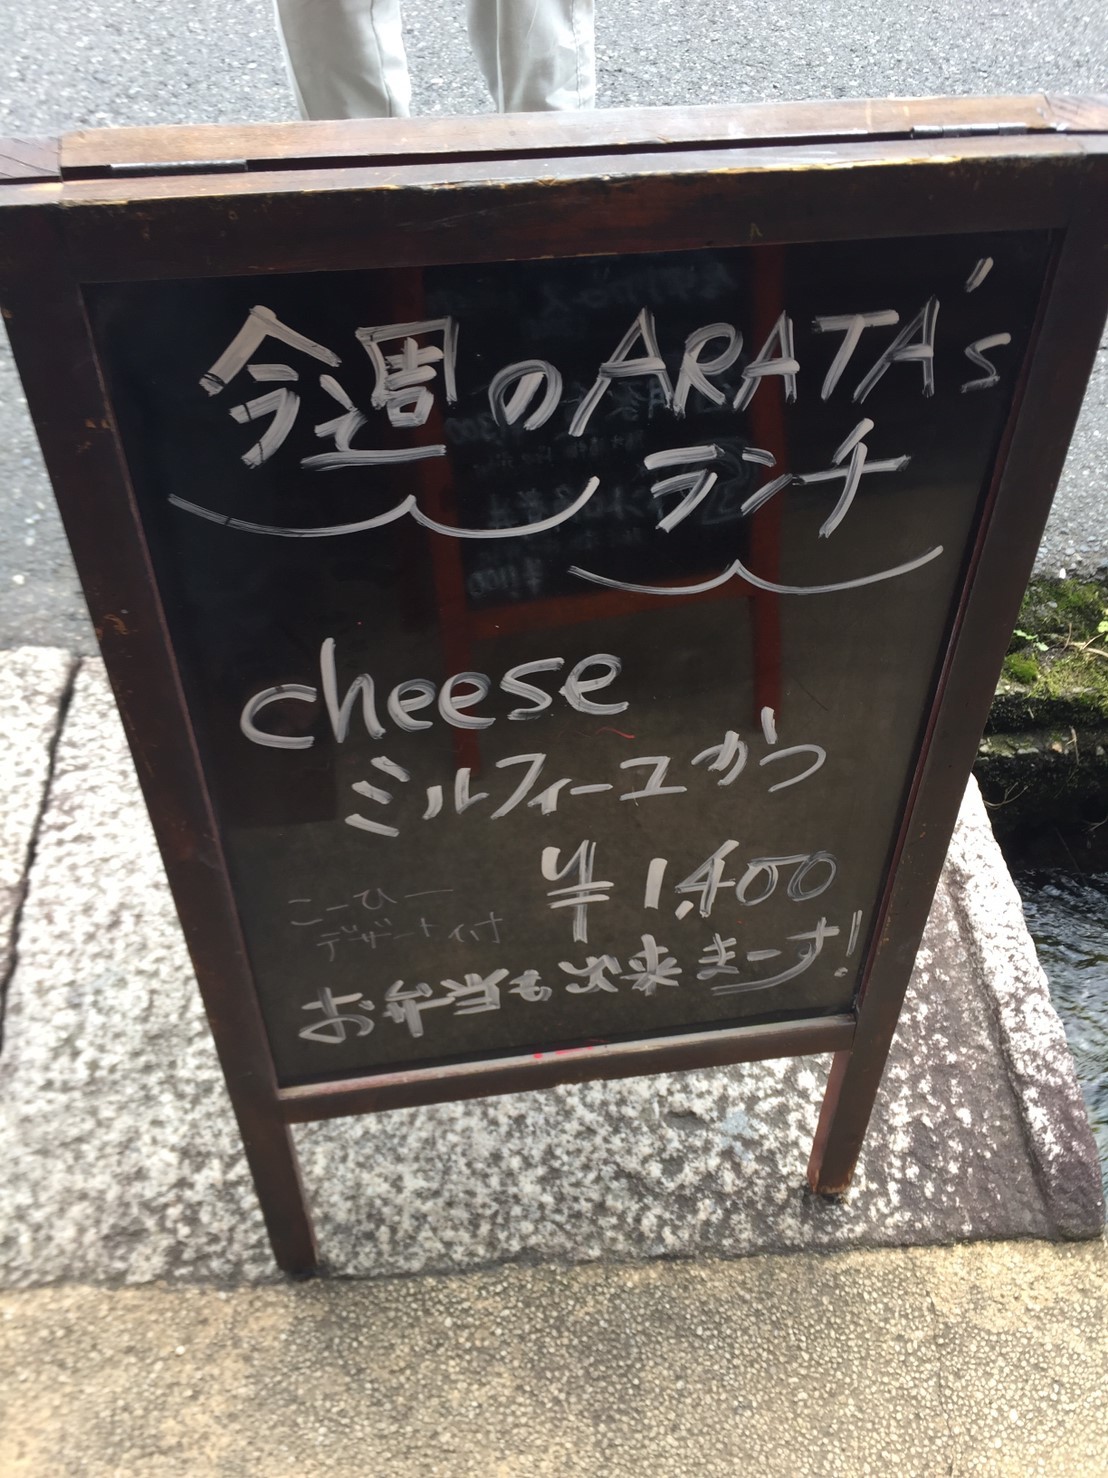 今週のARATA's
ランチ
cheese
ミルフィーユかつ
¥1,400
こーひー
デザート付
お弁当も出来まーす!